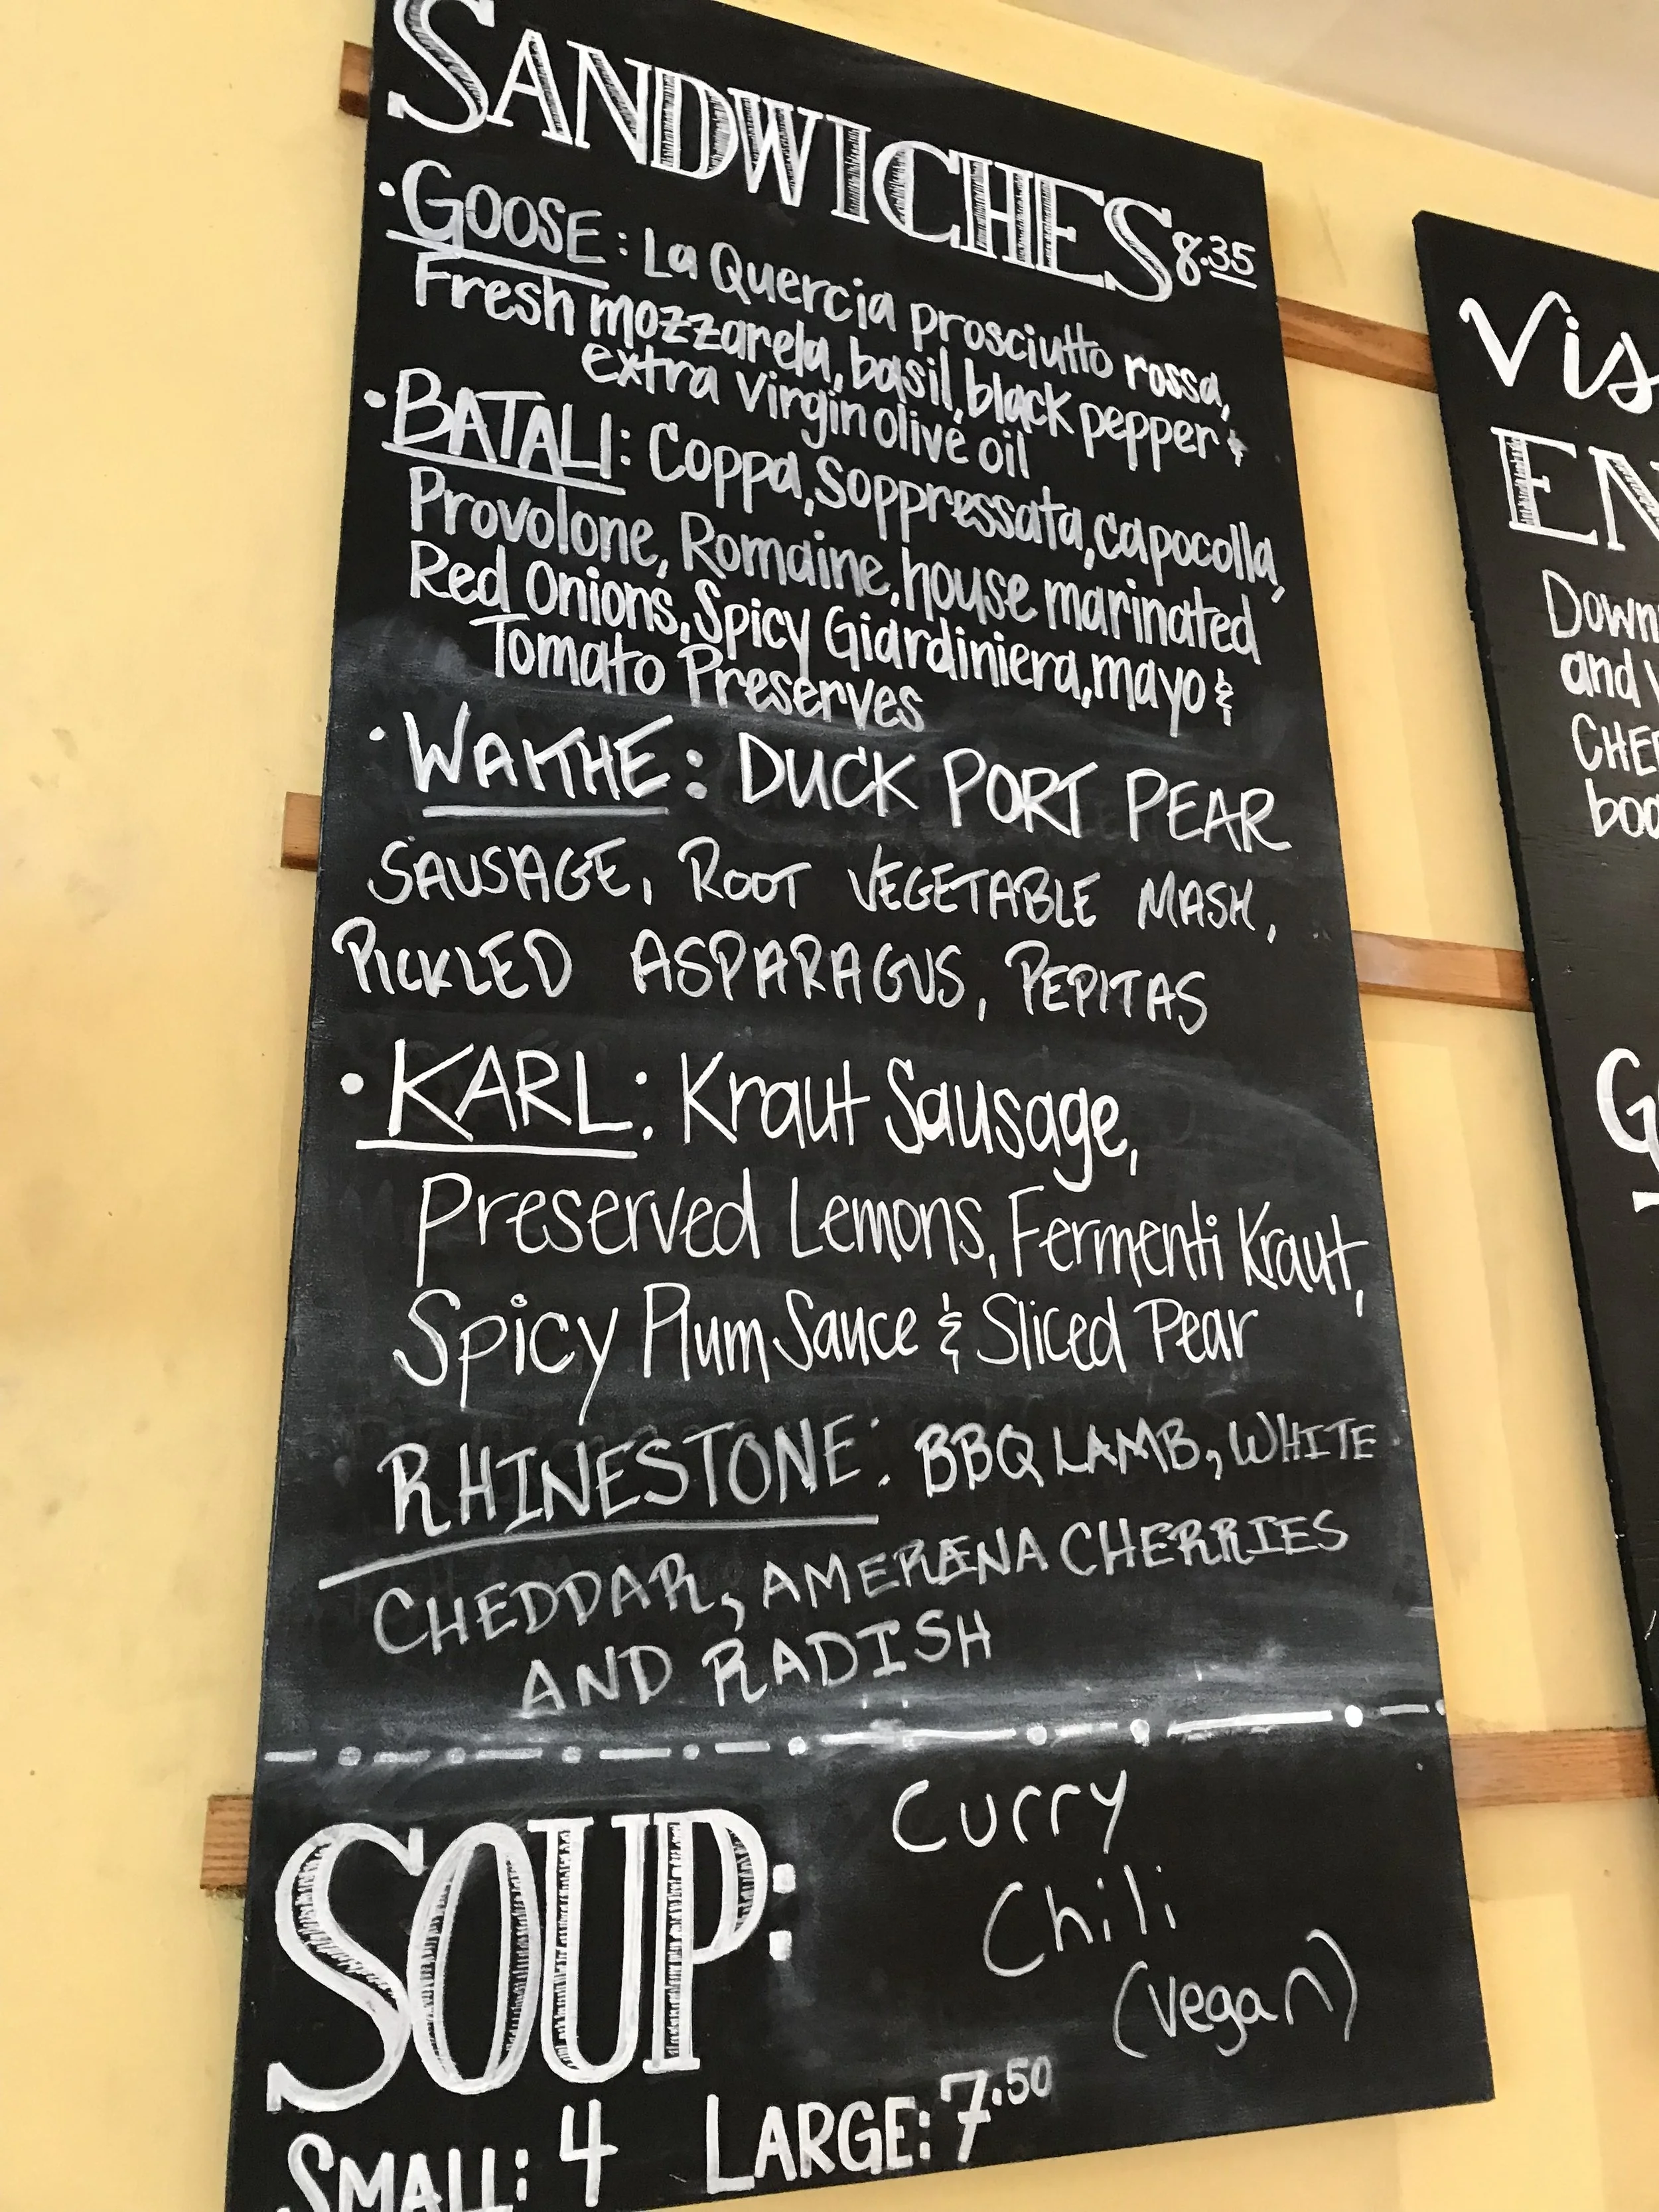 SANDWICHES 8.35
• GOOSE: La Quercia prosciutto rossa,
Fresh mozzarela, basil, black pepper &
extra virgin olive oil
• BATALI: Coppa, Soppressata, capocolla,
Provolone, Romaine, house marinated
Red Onions, Spicy Giardiniera, mayo &
Tomato Preserves
• WAKTHE: DUCK PORT PEAR
SAUSAGE, ROOT VEGETABLE MASH,
PICKLED ASPARAGUS, PEPITAS
• KARL: Kraut Sausage,
Preserved Lemons, Fermenti Kraut,
Spicy Plum Sauce & Sliced Pear
RHINESTONE: BBQ LAMB, WHITE
CHEDDAR, CHERRIES
AND RADISH
SOUP: Curry
Chili
(vegan)
SMALL: 4 LARGE: 7.50
Vis
EN
Down
and
CHEE
boo